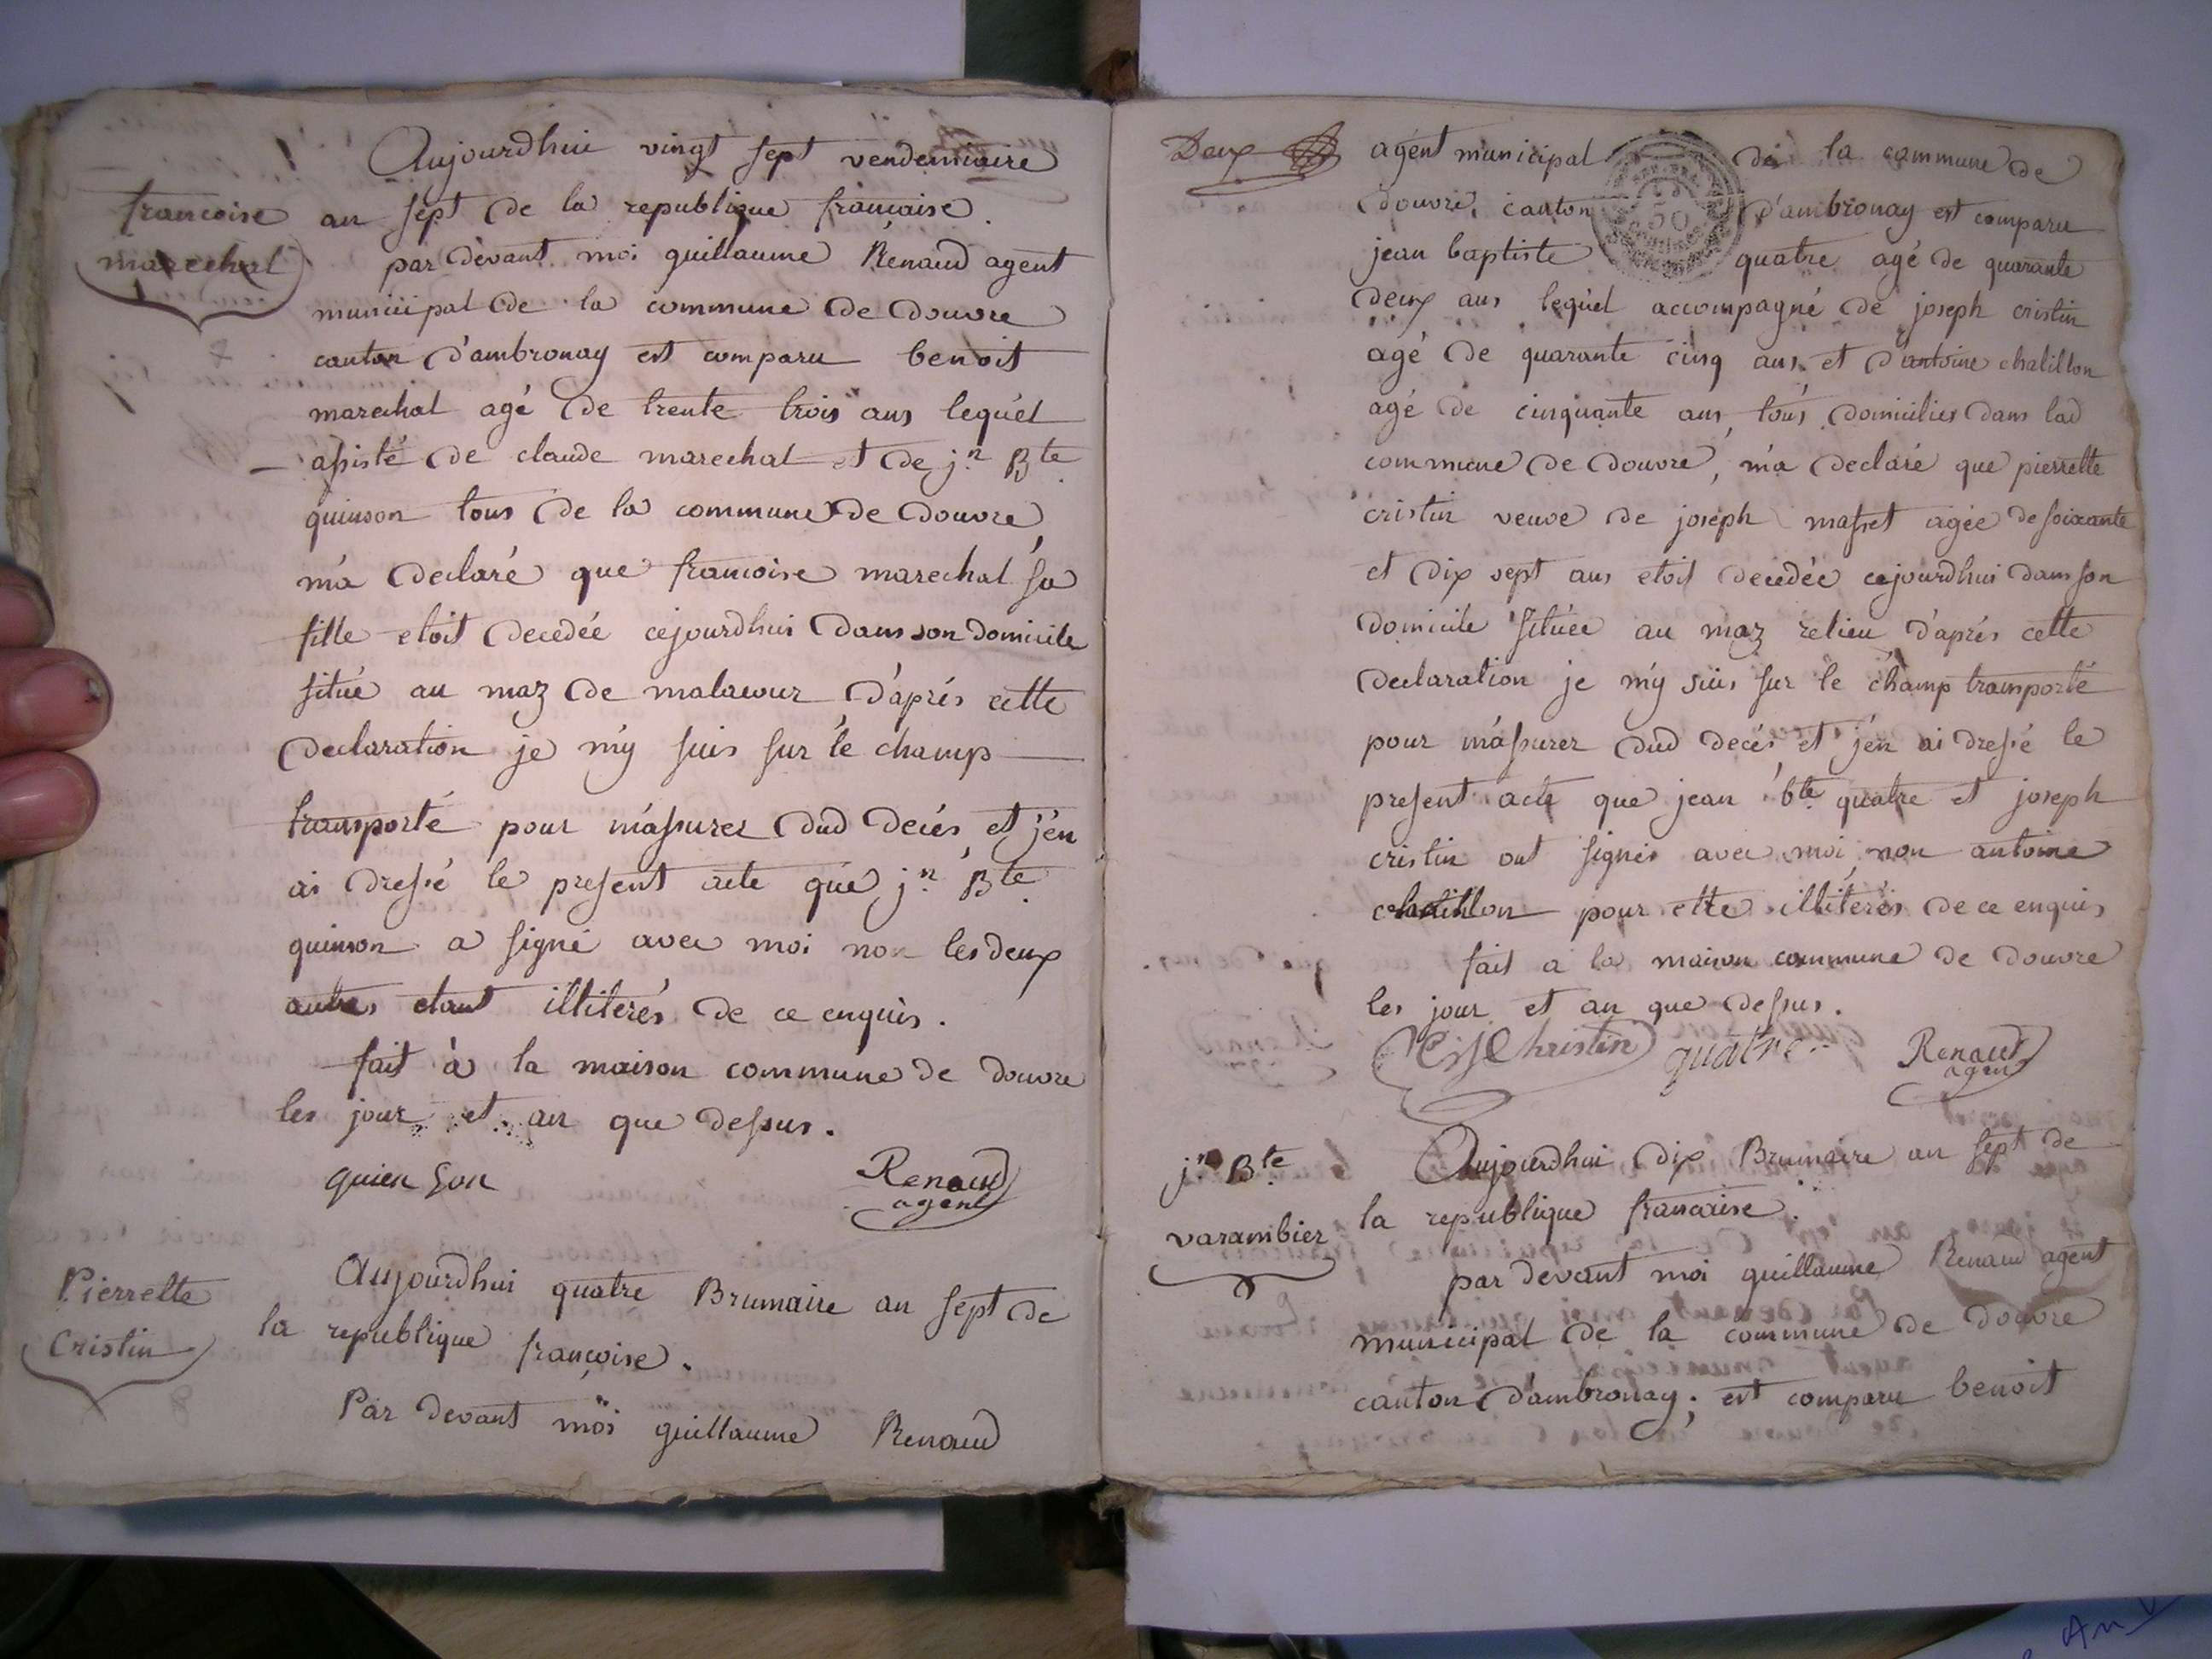 Aujourdhui vingt sept vendemiaire
francoise
marechal
an sept de la republique francaise.
par devant moi guillaume Renaud agent
municipal de la commune de douvre
canton d'ambronay est comparu benoit
marechal agé de trente trois ans lequel
assisté de claude marechal et de jn Bte
quinson tous de la commune de douvre,
m'a declaré que francoise marechal sa
fille etoit decedée cejourdhui dans son domicile
situé au maz de malacour d'aprés cette
declaration je m'y suis sur le champ
transporté pour m'assurer dud decés et j'en
ai dressé le present acte que jn Bte
quinson a signé avec moi non les deux
autres etant illiterés de ce enquis.
fait à la maison commune de douvre
les jour et an que dessus.
quien son Renaud
agent
Pierrette
Cristin
Aujourdhui quatre Brumaire an sept de
la republique françoise.
Par devant moi guillaume Renaud
Deux
agent municipal de la commune de
douvre, canton d'ambronay est comparu
50
jean baptiste quatre agé de quarante
deux ans lequel accompagné de joseph cristin
agé de quarante cinq ans et d'antoine chalillon
agé de cinquante ans, tous domiciliés dans lad
commune de douvre, m'a declaré que pierrette
cristin veuve de joseph masset agée de soixante
et dix sept ans etoit decedée cejourdhui dans son
domicile située au maz relieu d'aprés cette
declaration je m'y suis sur le champ transporté
pour m'assurer dud decés et j'en ai dressé le
present acte que jean bte quatre et joseph
cristin ont signés avec moi non antoine
chatillon pour etre illiterés de ce enquis
fait a la maison commune de douvre
les jour et an que dessus.
Christin quatre Renaud
agent
jn Bte
varambier
Aujourdhui dix Brumaire an sept de
la republique francaise.
par devant moi guillaume Renaud agent
municipal de la commune de douvre
canton d'ambronay; est comparu benoit
An V